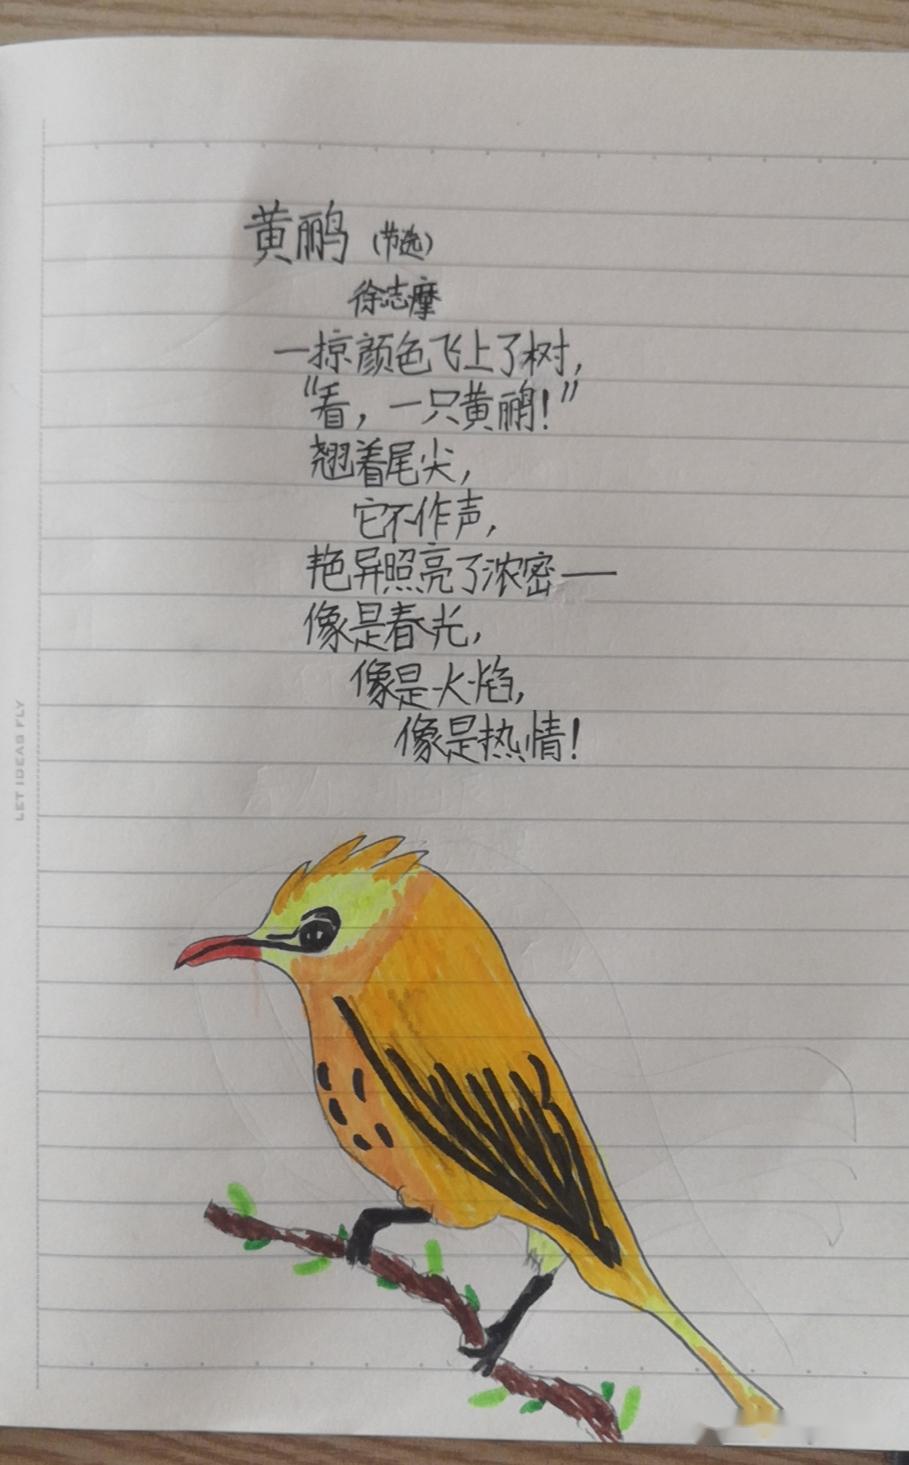 黄鹂(节选)
徐志摩
一掠颜色飞上了树,
“看,一只黄鹂!”
翘着尾尖,
它不作声,
艳异照亮了浓密——
像是春光,
像是火焰,
像是热情!
LET IDEAS FLY